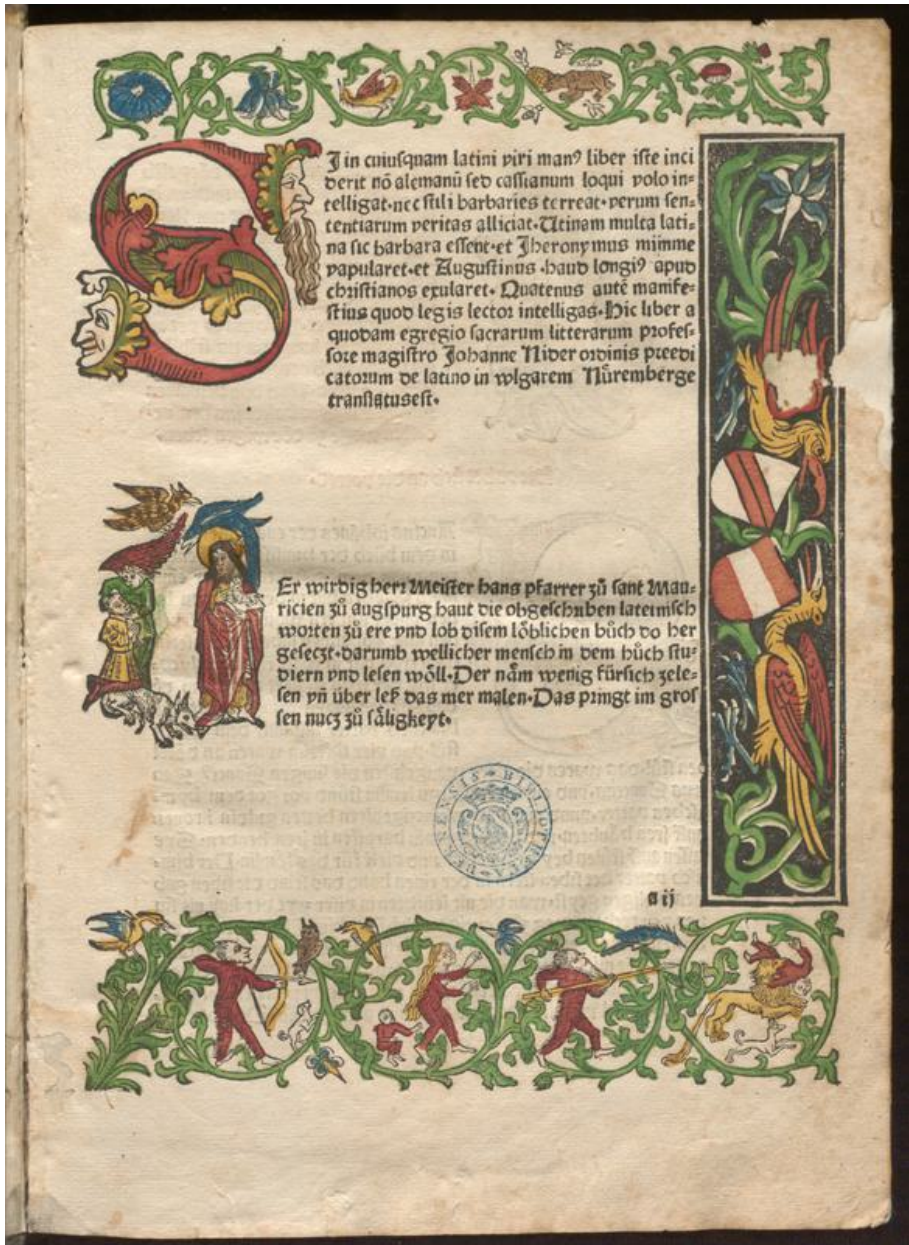 SJ in cuiusquam latini viri manꝰ liber iste inci
derit nō alemanū sed cassianum loqui volo in⸗
telligat·nec stili barbaries terreat·verum sen⸗
tentiarum veritas alliciat·Utinam multa lati⸗
na sic barbara essent·et Jheronymus minime
vapularet·et Augustinus·haud longiꝰ apud
christianos exularet· Quatenus autē manife⸗
stius quod legis lector intelligas·Hic liber a
quodam egregio sacrarum litterarum profes⸗
sore magistro Johanne Nider ordinis predi
catorum de latino in wlgarem Nüremberge
translatusest·
DEr wirdig herr Meister hans pfarrer zů sant Mau⸗
ricien zů augspurg haut die obgeschriben lateinisch
worten zů ere vnd lob disem löblichen bůch do her
geseczt·darumb wellicher mensch in dem bůch stu⸗
diern vnd lesen wöll·Der näm wenig fürsich zele⸗
sen vn̄ über leß das mer malen·Das pringt im gros
sen nucz zů säligkeyt·
BIBLIOTHECA BERNENSIS
a ij